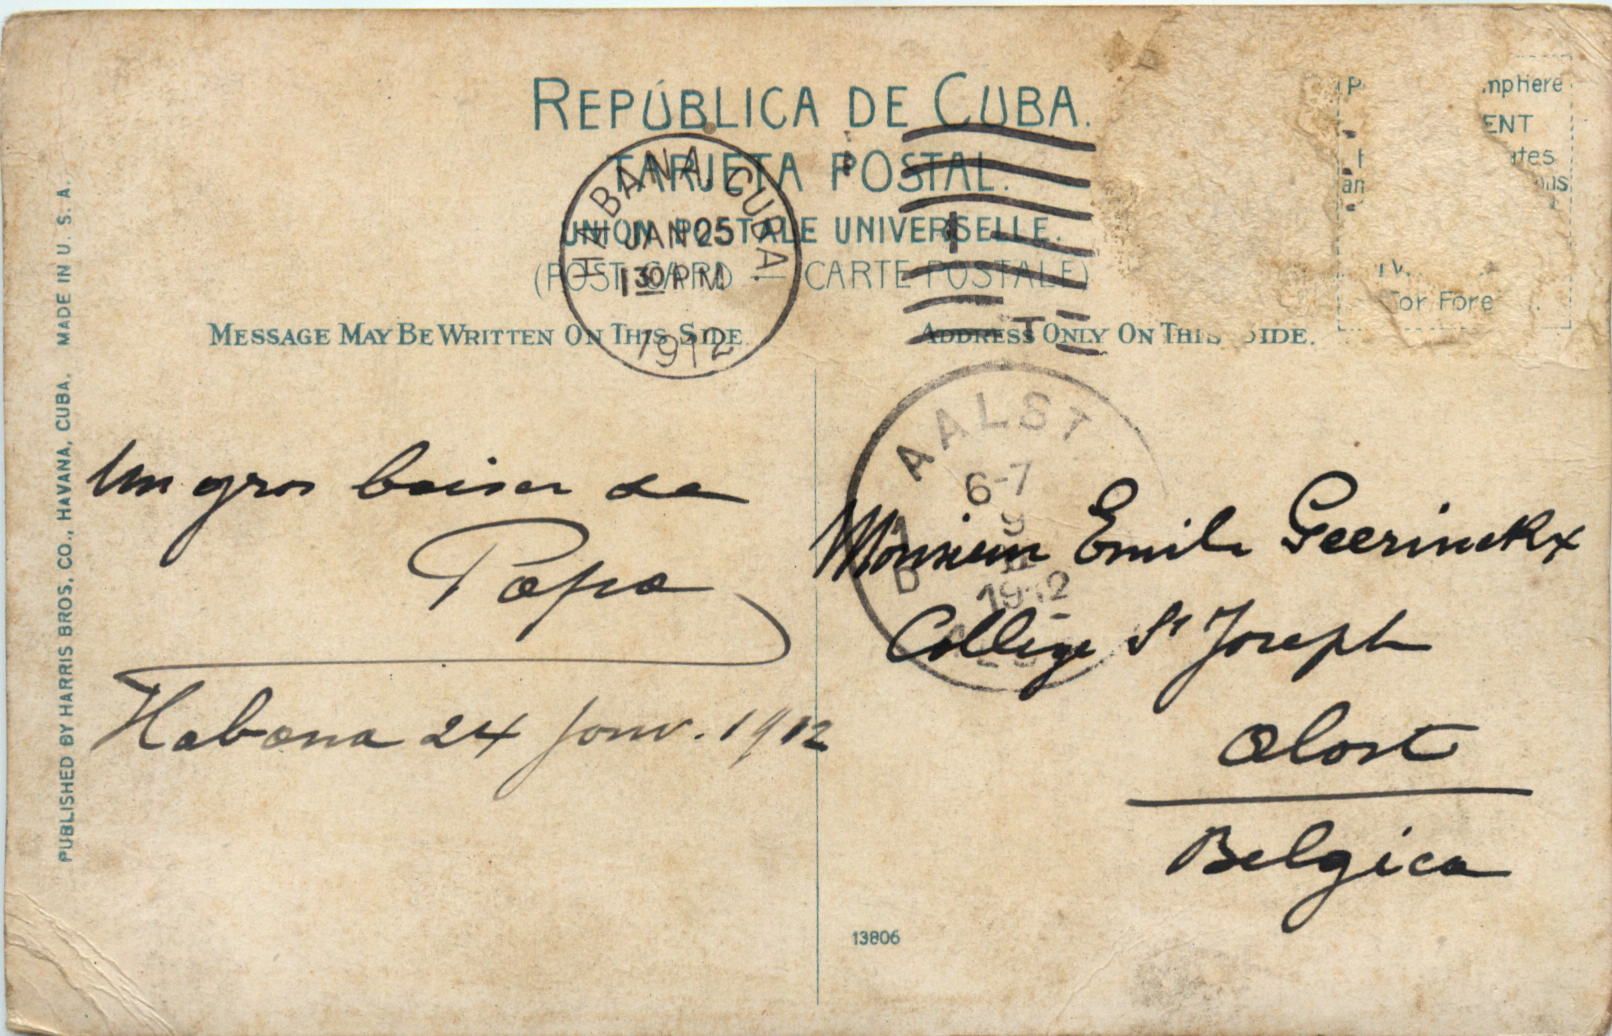 REPÚBLICA DE CUBA.
TARJETA POSTAL.
UNION POSTALE UNIVERSELLE.
(POST CARD CARTE POSTALE)
MESSAGE MAY BE WRITTEN ON THIS SIDE
ADDRESS ONLY ON THIS SIDE.
HABANA, CUBA.
JAN 25
1 30 PM
1912
T
or Fore
PUBLISHED BY HARRIS BROS. CO., HAVANA, CUBA. MADE IN U. S. A.
Un gros baiser de
Papa
Habana 24 janv. 1912
AALST
6-7
9
1912
Monsieur Emile Geerinckx
Collège St Joseph
Alost
Belgica
13806